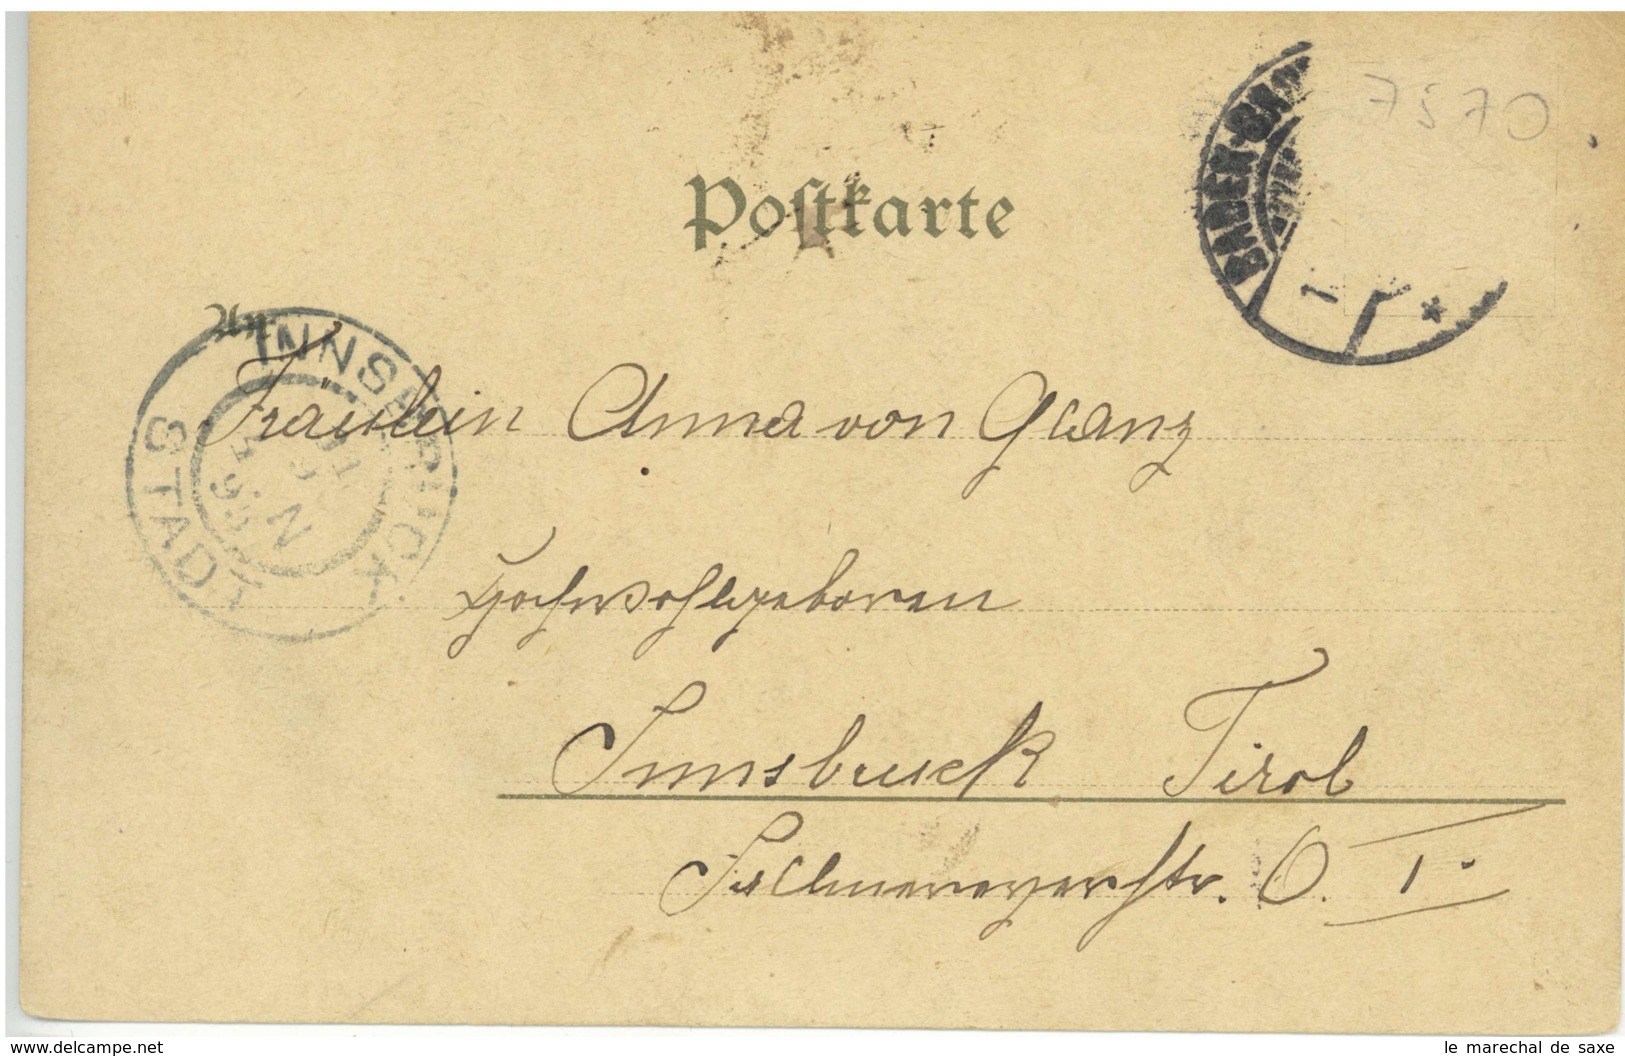 7570
BADEN-BAD
1
Postkarte
An
INNSBRUCK
STADT
Fräulein Anna von Glanz
Hochwohlgeboren
Innsbruck Tirol
Fallmereyerstr. 6. I.
www.delcampe.net
le marechal de saxe